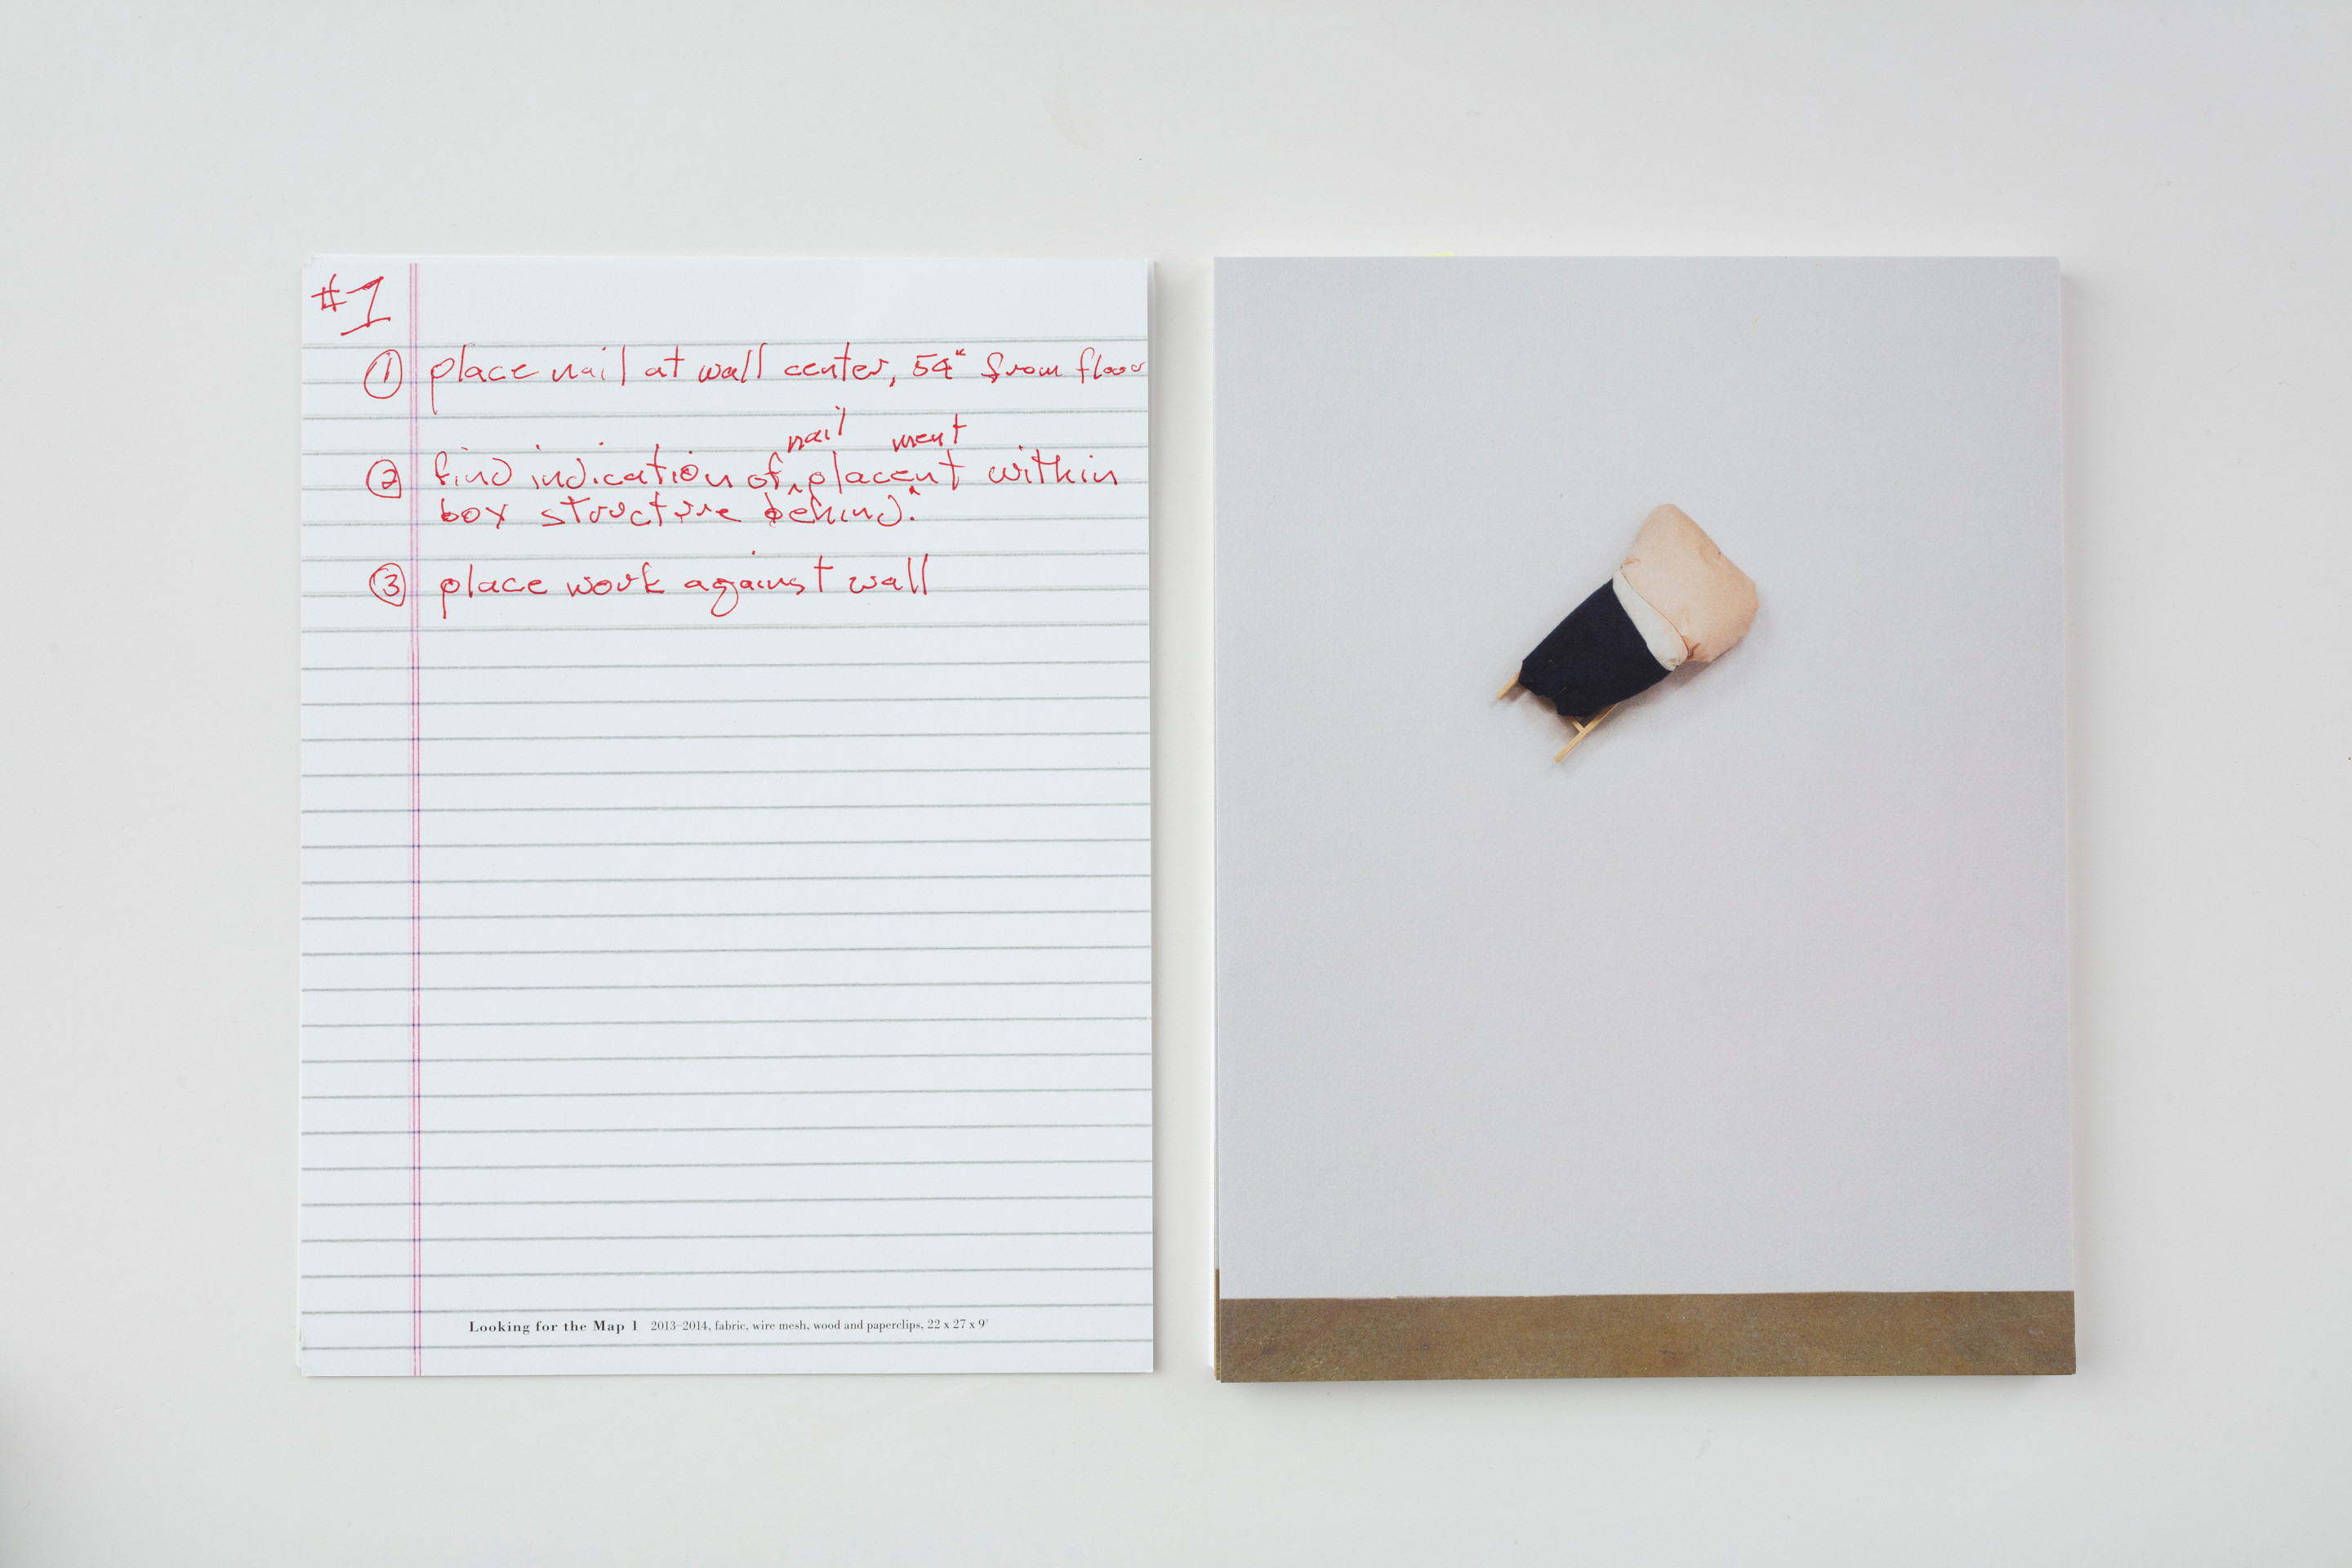 #1
① place nail at wall center, 54" from floor
nail ment
② find indication of ^ placent ^ within
box structure behind.
③ place work against wall
Looking for the Map 1 2013–2014, fabric, wire mesh, wood and paperclips, 22 x 27 x 9"